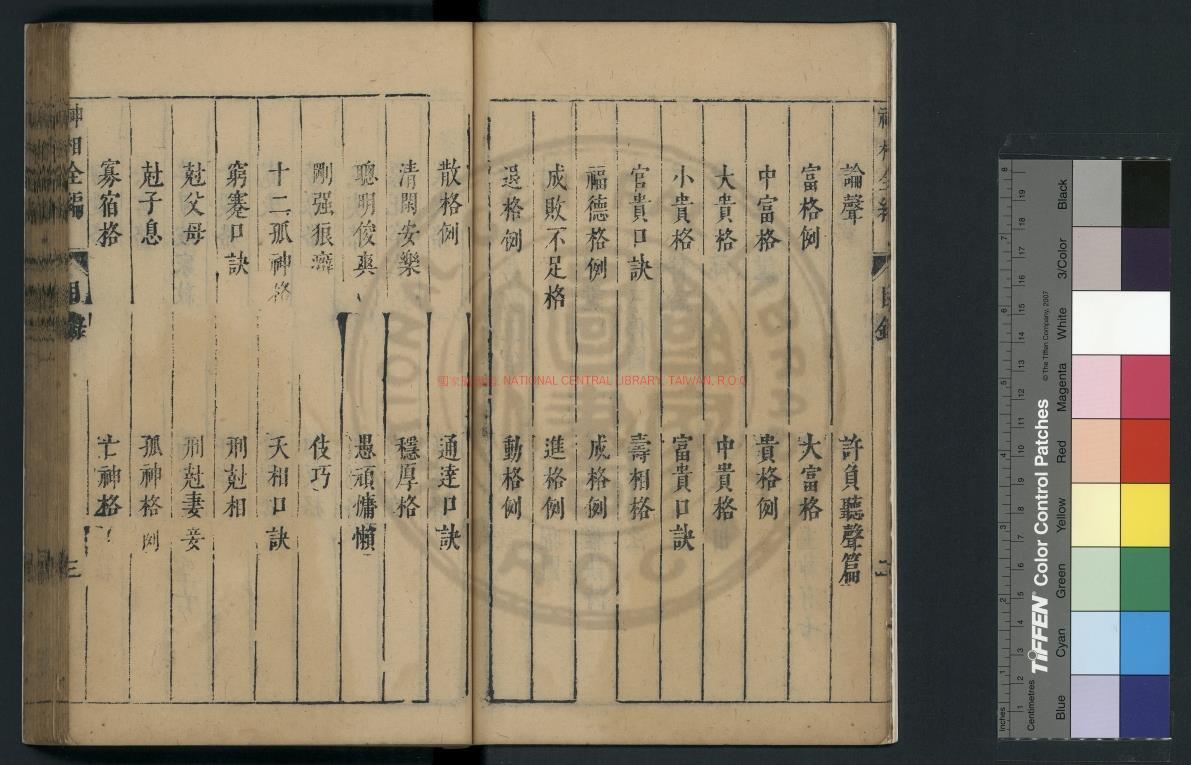 論聲
許負聽聲篇
富格例
大富格
中富格
貴格例
大貴格
中貴格
小貴格
富貴口訣
官貴口訣
壽相格
福德格例
成格例
成敗不足格
進格例
退格例
動格例
散格例
通達口訣
清閑安樂
穩厚格
聰明俊爽
愚頑慵懶
剛强狠
伎巧
十二孤神格
夭相口訣
窮蹇口訣
刑尅相
尅父母
刑尅妻妾
尅子息
孤神格例
寡宿格
亡神格
神相全編
目錄
三
國家圖書館 NATIONAL CENTRAL LIBRARY, TAIWAN, R.O.C
TIFFEN Color Control Patches
© The Tiffen Company, 2007
Inches
Centimetres
Blue
Cyan
Green
Yellow
Red
Magenta
White
3/Color
Black